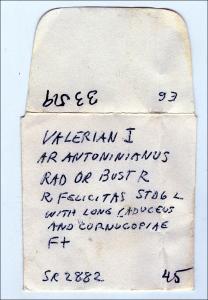 VALERIAN I
AR ANTONINIANUS
RAD DR BUST R
R FELICITAS STDG L
WITH LONG CADUCEUS
AND CORNUCOPIAE
F+
SR 2882 45